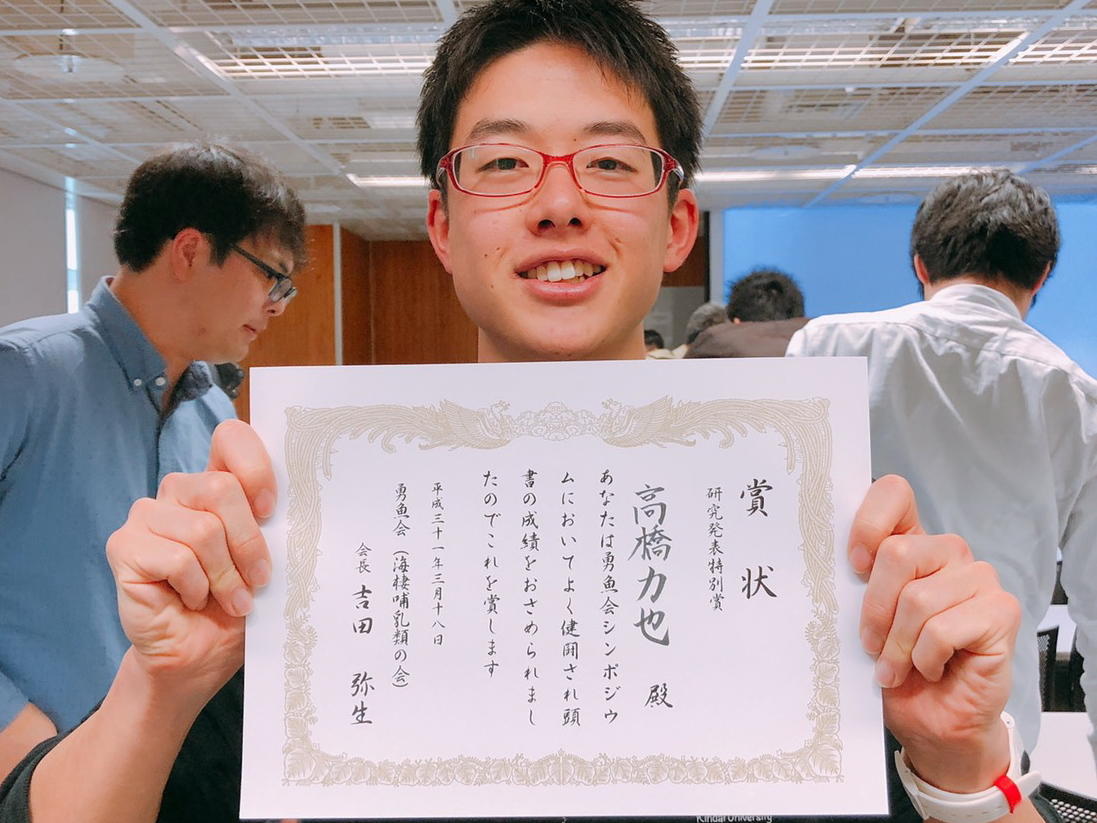 賞状
研究発表特別賞
高橋力也 殿
あなたは勇魚会シンポジウ
ムにおいてよく健闘され頭
書の成績をおさめられまし
たのでこれを賞します
平成三十一年三月十八日
勇魚会（海棲哺乳類の会）
会長 吉田 弥生
Kindai University